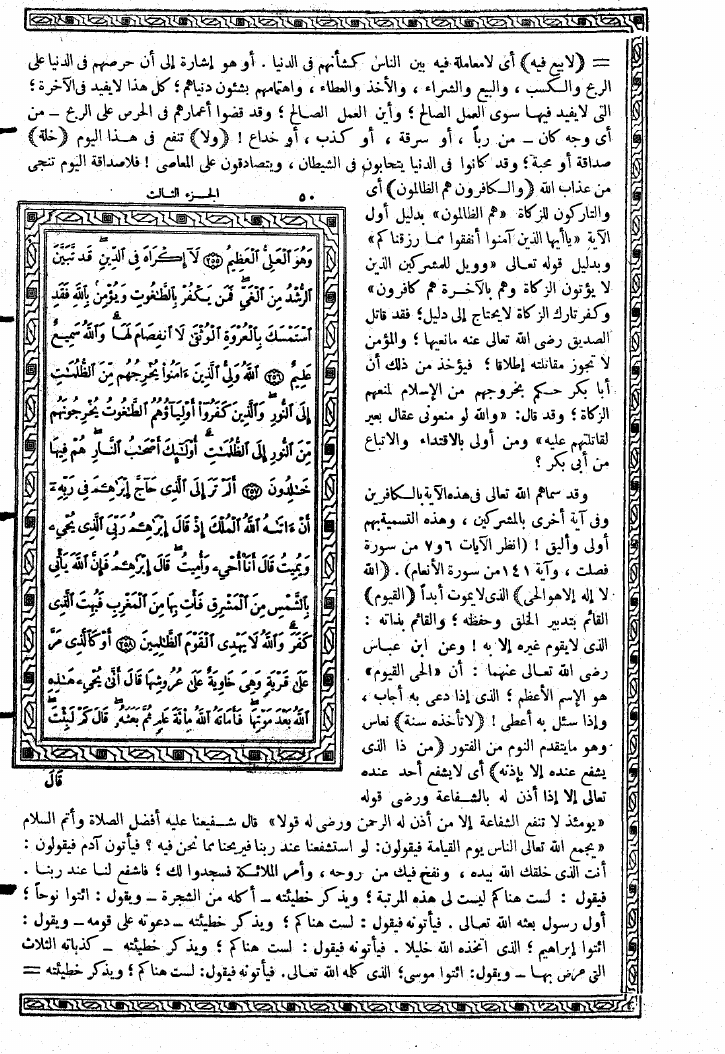 = (لابيع فيه) أى لامعاملة فيه بين الناس كشأنهم فى الدنيا . أو هو إشارة إلى أن حرصهم فى الدنيا على
الربح والكسب ، والبيع والشراء ، والأخذ والعطاء ، واهتمامهم بشئون دنياهم ؛ كل هذا لايفيد فى الآخرة ؛
التى لايفيد فيها سوى العمل الصالح ؛ وأين العمل الصالح ؛ وقد قضوا أعمارهم فى الحرص على الربح – من
أى وجه كان – من رباً ، أو سرقة ، أو كذب ، أو خداع ! (ولا) تنفع فى هذا اليوم (خلة)
صداقة أو محبة ؛ وقد كانوا فى الدنيا يتحابون فى الشيطان ، ويتصادقون على المعاصى ! فلاصداقة اليوم تنجى
من عذاب الله (والكافرون هم الظالمون) أى
والتاركون للزكاة «هم الظالمون» بدليل أول
الآية «ياأيها الذين آمنوا أنفقوا مما رزقناكم»
وبدليل قوله تعالى «وويل للمشركين الذين
لا يؤتون الزكاة وهم بالآخرة هم كافرون»
وكفر تارك الزكاة لايحتاج إلى دليل ؛ فقد قاتل
الصديق رضى الله تعالى عنه مانعيها ؛ والمؤمن
لا تجوز مقاتلته إطلاقا ؛ فيؤخذ من ذلك أن
أبا بكر حكم بخروجهم من الإسلام لمنعهم
الزكاة ؛ وقد قال : «والله لو منعونى عقال بعير
لقاتلتهم عليه» ومن أولى بالاقتداء والاتباع
من أبى بكر ؟
وقد سماهم الله تعالى فى هذه الآية بالكافرين
وفى آية أخرى بالمشركين ، وهذه التسمية بهم
أولى وأليق ! (انظر الآيات ٦و٧ من سورة
فصلت ، وآية ١٤١ من سورة الأنعام) . (الله
لا إله إلا هو الحى) الذى لايموت أبداً (القيوم)
القائم بتدبير الخلق وحفظه ؛ والقائم بذاته :
الذى لايقوم غيره إلا به ! وعن ابن عباس
رضى الله تعالى عنهما : أن «الحى القيوم»
هو الإسم الأعظم ؛ الذى إذا دعى به أجاب ،
وإذا سئل به أعطى ! (لاتأخذه سنة) نعاس
وهو مايتقدم النوم من الفتور (من ذا الذى
يشفع عنده إلا بإذنه) أى لايشفع أحد عنده
تعالى إلا إذا أذن له بالشفاعة ورضى قوله
الجزء الثالث ٥٠
وَهُوَ ٱلْعَلِىُّ ٱلْعَظِيمُ ٢٥٥ لَآ إِكْرَاهَ فِى ٱلدِّينِ قَد تَّبَيَّنَ
ٱلرُّشْدُ مِنَ ٱلْغَىِّ فَمَن يَكْفُرْ بِٱلطَّٰغُوتِ وَيُؤْمِنۢ بِٱللَّهِ فَقَدِ
ٱسْتَمْسَكَ بِٱلْعُرْوَةِ ٱلْوُثْقَىٰ لَا ٱنفِصَامَ لَهَا وَٱللَّهُ سَمِيعٌ
عَلِيمٌ ٢٥٦ ٱللَّهُ وَلِىُّ ٱلَّذِينَ ءَامَنُوا۟ يُخْرِجُهُم مِّنَ ٱلظُّلُمَٰتِ
إِلَى ٱلنُّورِ وَٱلَّذِينَ كَفَرُوٓا۟ أَوْلِيَآؤُهُمُ ٱلطَّٰغُوتُ يُخْرِجُونَهُم
مِّنَ ٱلنُّورِ إِلَى ٱلظُّلُمَٰتِ أُو۟لَٰٓئِكَ أَصْحَٰبُ ٱلنَّارِ هُمْ فِيهَا
خَٰلِدُونَ ٢٥٧ أَلَمْ تَرَ إِلَى ٱلَّذِى حَآجَّ إِبْرَٰهِـۧمَ فِى رَبِّهِۦٓ
أَنْ ءَاتَىٰهُ ٱللَّهُ ٱلْمُلْكَ إِذْ قَالَ إِبْرَٰهِـۧمُ رَبِّىَ ٱلَّذِى يُحْىِۦ
وَيُمِيتُ قَالَ أَنَا۠ أُحْىِۦ وَأُمِيتُ قَالَ إِبْرَٰهِـۧمُ فَإِنَّ ٱللَّهَ يَأْتِى
بِٱلشَّمْسِ مِنَ ٱلْمَشْرِقِ فَأْتِ بِهَا مِنَ ٱلْمَغْرِبِ فَبُهِتَ ٱلَّذِى
كَفَرَ وَٱللَّهُ لَا يَهْدِى ٱلْقَوْمَ ٱلظَّٰلِمِينَ ٢٥٨ أَوْ كَٱلَّذِى مَرَّ
عَلَىٰ قَرْيَةٍ وَهِىَ خَاوِيَةٌ عَلَىٰ عُرُوشِهَا قَالَ أَنَّىٰ يُحْىِۦ هَٰذِهِ
ٱللَّهُ بَعْدَ مَوْتِهَا فَأَمَاتَهُ ٱللَّهُ مِا۟ئَةَ عَامٍ ثُمَّ بَعَثَهُۥ قَالَ كَمْ لَبِثْتَ
قَالَ
«يومئذ لا تنفع الشفاعة إلا من أذن له الرحمن ورضى له قولا» قال شفيعنا عليه أفضل الصلاة وأتم السلام
«يجمع الله تعالى الناس يوم القيامة فيقولون : لو استشفعنا عند ربنا فيريحنا مما نحن فيه ؟ فيأتون آدم فيقولون :
أنت الذى خلقك الله بيده ، ونفخ فيك من روحه ، وأمر الملائكة فسجدوا لك ؛ فاشفع لنا عند ربنا .
فيقول : لست هناكم ليست لى هذه المرتبة ؛ ويذكر خطيئته – أكله من الشجرة – ويقول : ائتوا نوحاً ؛
أول رسول بعثه الله تعالى . فيأتونه فيقول : لست هناكم ؛ ويذكر خطيئته – دعوته على قومه – ويقول :
ائتوا إبراهيم ؛ الذى اتخذه الله خليلا . فيأتونه فيقول : لست هناكم ؛ ويذكر خطيئته – كذباته الثلاث
التى عرض بها – ويقول : ائتوا موسى ؛ الذى كلمه الله تعالى . فيأتونه فيقول : لست هناكم ؛ ويذكر خطيئته =